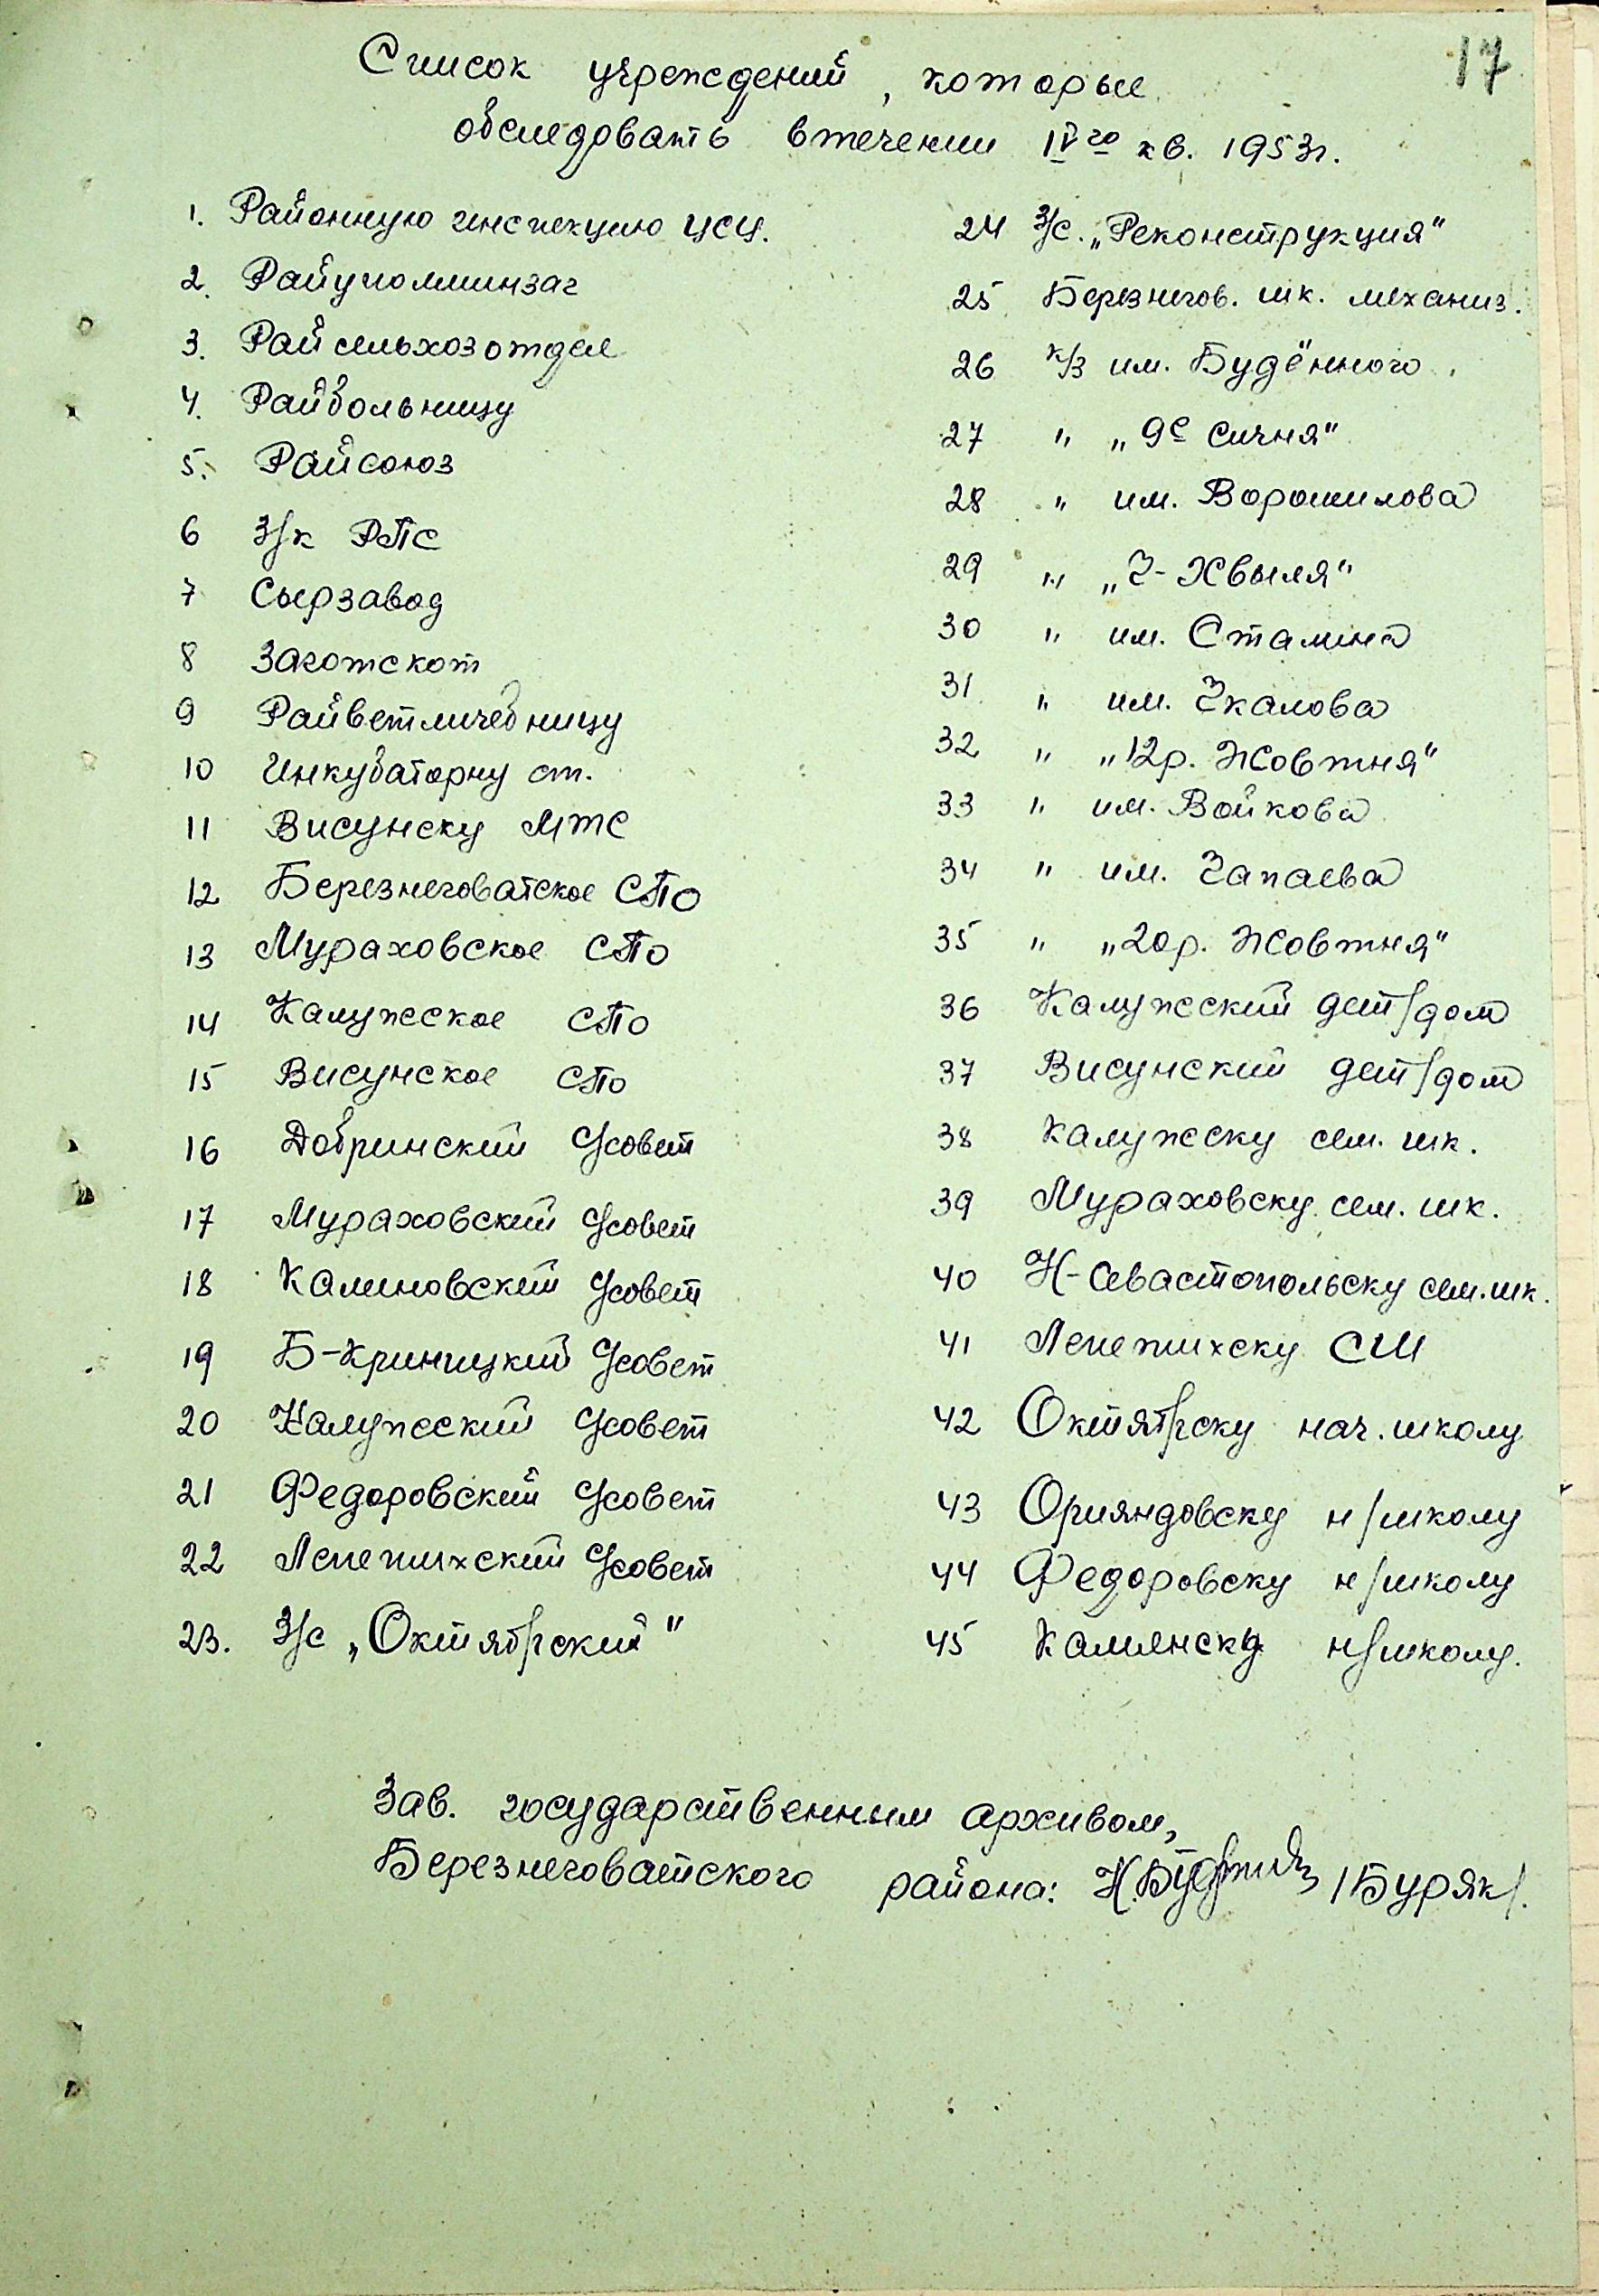 17
Список учреждений, которые
обследовать втечении IVго кв. 1953г.
1. Районную инспекцию ЦСУ.
2. Райуполминзаг
3. Райсельхозотдел
4. Райбольницу
5. Райсоюз
6 З/к РПС
7 Сырзавод
8 Заготскот
9 Райветличебницу
10 Инкубаторну ст.
11 Висунску МТС
12 Березнеговатское СПО
13 Мураховское СПО
14 Калужское СПО
15 Висунское СПО
16 Добринский с/совет
17 Мураховский с/совет
18 Калиновский с/совет
19 Б-Криницкий с/совет
20 Калужский с/совет
21 Федоровский с/совет
22 Лепетихский с/совет
23. З/с „Октябрский"
24 З/с. „Реконструкция"
25 Березнегов. шк. механиз.
26 к/з им. Будённого
27 " „9е Сичня"
28 " им. Ворошилова
29 " „Ч-Хвыля"
30 " им. Сталина
31 " им. Чкалова
32 " „12р. Жовтня"
33 " им. Войкова
34 " им. Чапаева
35 " „20р. Жовтня"
36 Калужский дет/дом
37 Висунский дет/дом
38 Калужску сем. шк.
39 Мураховску сем. шк.
40 Н-Севастопольску сем. шк.
41 Лепетихску СШ
42 Октябрску нач. школу
43 Орияндовску н/школу
44 Федоровску н/школу
45 Камянску н/школу.
Зав. государственным архивом,
Березнеговатского района: /Буряк/.